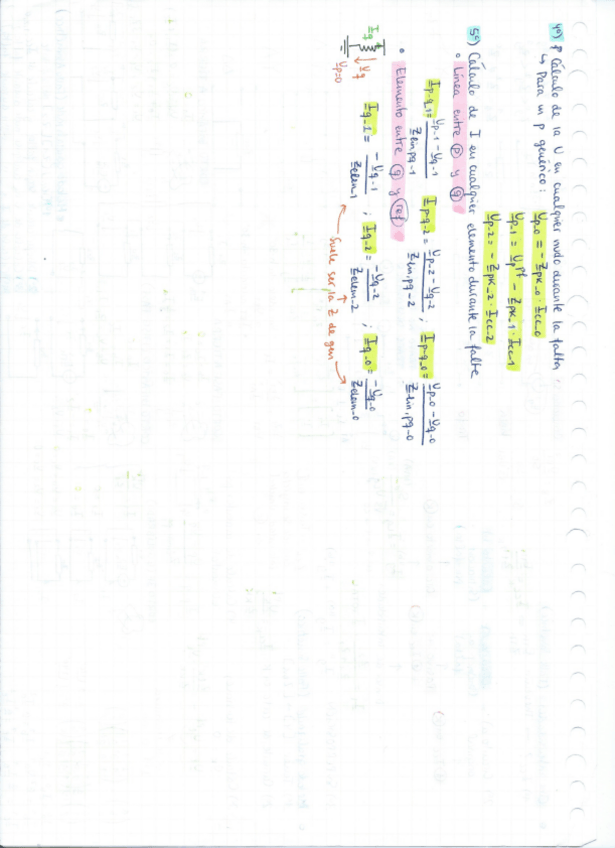 4º) Cálculo de la U en cualquier nudo durante la falta
↳ Para un p genérico:
Up_0 = - Zpk_0 · Icc_0
Up_1 = Up^Pf - Zpk_1 · Icc_1
Up_2 = - Zpk_2 · Icc_2
5º) Cálculo de I en cualquier elemento durante la falta
• Línea entre (p) y (q)
Ip-q_1 = (Up_1 - Uq_1) / Zlin,pq_1 Ip-q_2 = (Up_2 - Uq_2) / Zlin,pq_2 ; Ip-q_0 = (Up_0 - Uq_0) / Zlin,pq_0
• Elemento entre (q) y (ref)
Iq_1 = -Uq_1 / Zelem_1 ; Iq_2 = -Uq_2 / Zelem_2 ; Iq_0 = -Uq_0 / Zelem_0
Iq
Uq
Up=0
Suele ser la Z de gen